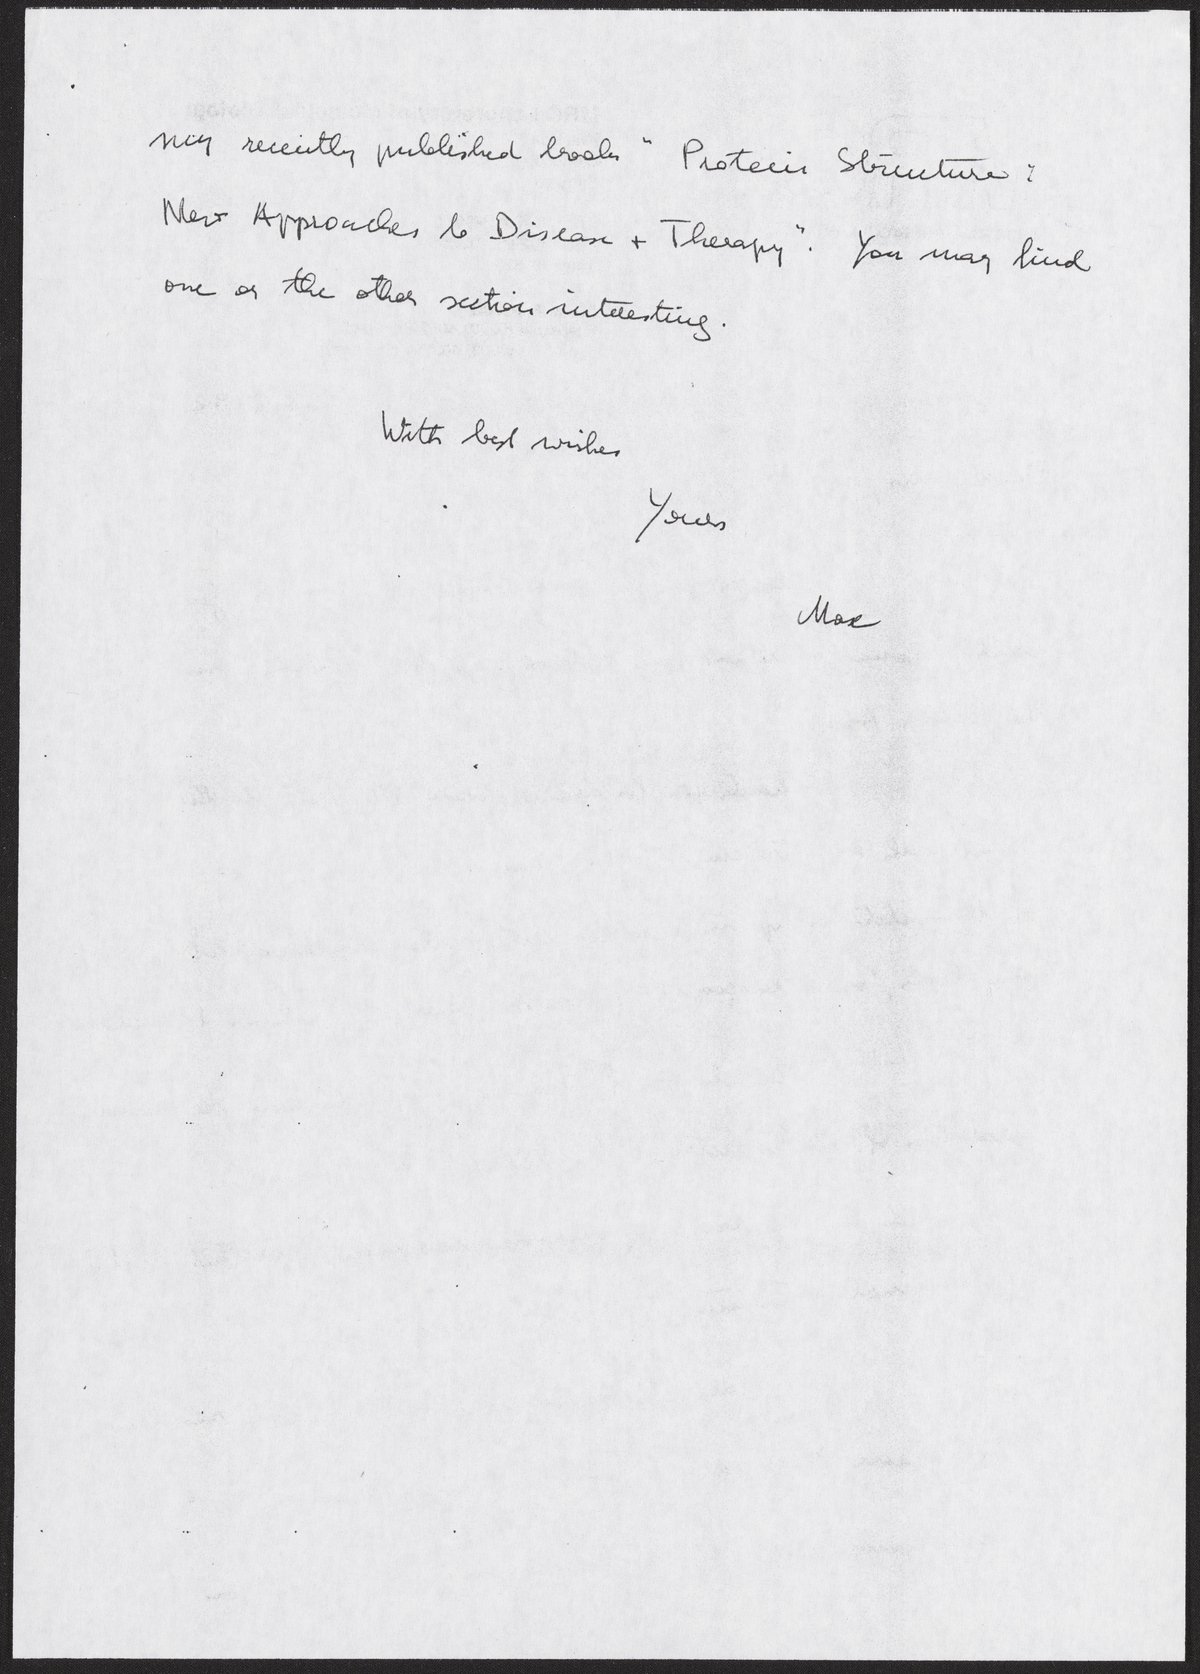 my recently published book " Protein Structure :
New Approaches to Disease + Therapy". You may find
one or the other section interesting.
With best wishes
Yours
Max